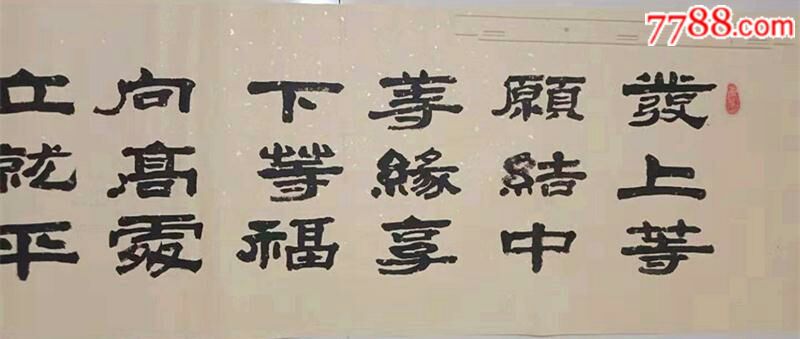 7788.com
發上等
願結中
等緣享
下等福
向高處
立就平